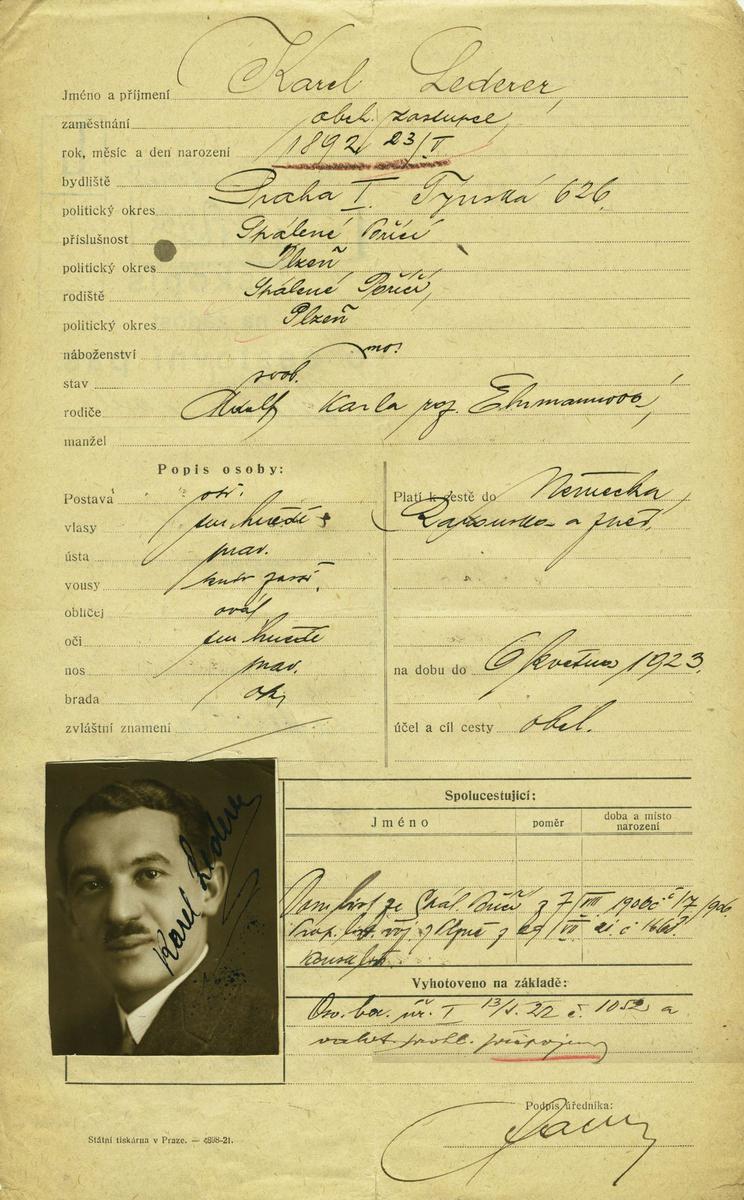 Jméno a příjmení Karel Lederer,
zaměstnání obch. zástupce,
rok, měsíc a den narození 1892 23/V
bydliště
Praha I. Týnská 626.
politický okres
příslušnost Spálené Poříčí
politický okres Plzeň
rodiště Spálené Poříčí,
politický okres Plzeň
náboženství mos.
stav svob.
rodiče Adolf Karla roz. Ehrmannová,
manžel
Popis osoby:
Postava stř.
vlasy tm. hnědé
ústa prav.
vousy knír
obličej ovál
oči tm. hnědé
nos prav.
brada ok,
zvláštní znamení
Platí k cestě do Německa,
Rakouska a zpět.
na dobu do 6 května 1923.
účel a cíl cesty obch.
Karel Lederer
Spolucestující:
Jméno poměr doba a místo narození
Dom. list ze Spál. Poříčí z 7/VIII 1906 č 7/906
Vyhotoveno na základě:
I 13/5. 22 č. 1052 a
Podpis úředníka:
Státní tiskárna v Praze. — 4898-21.